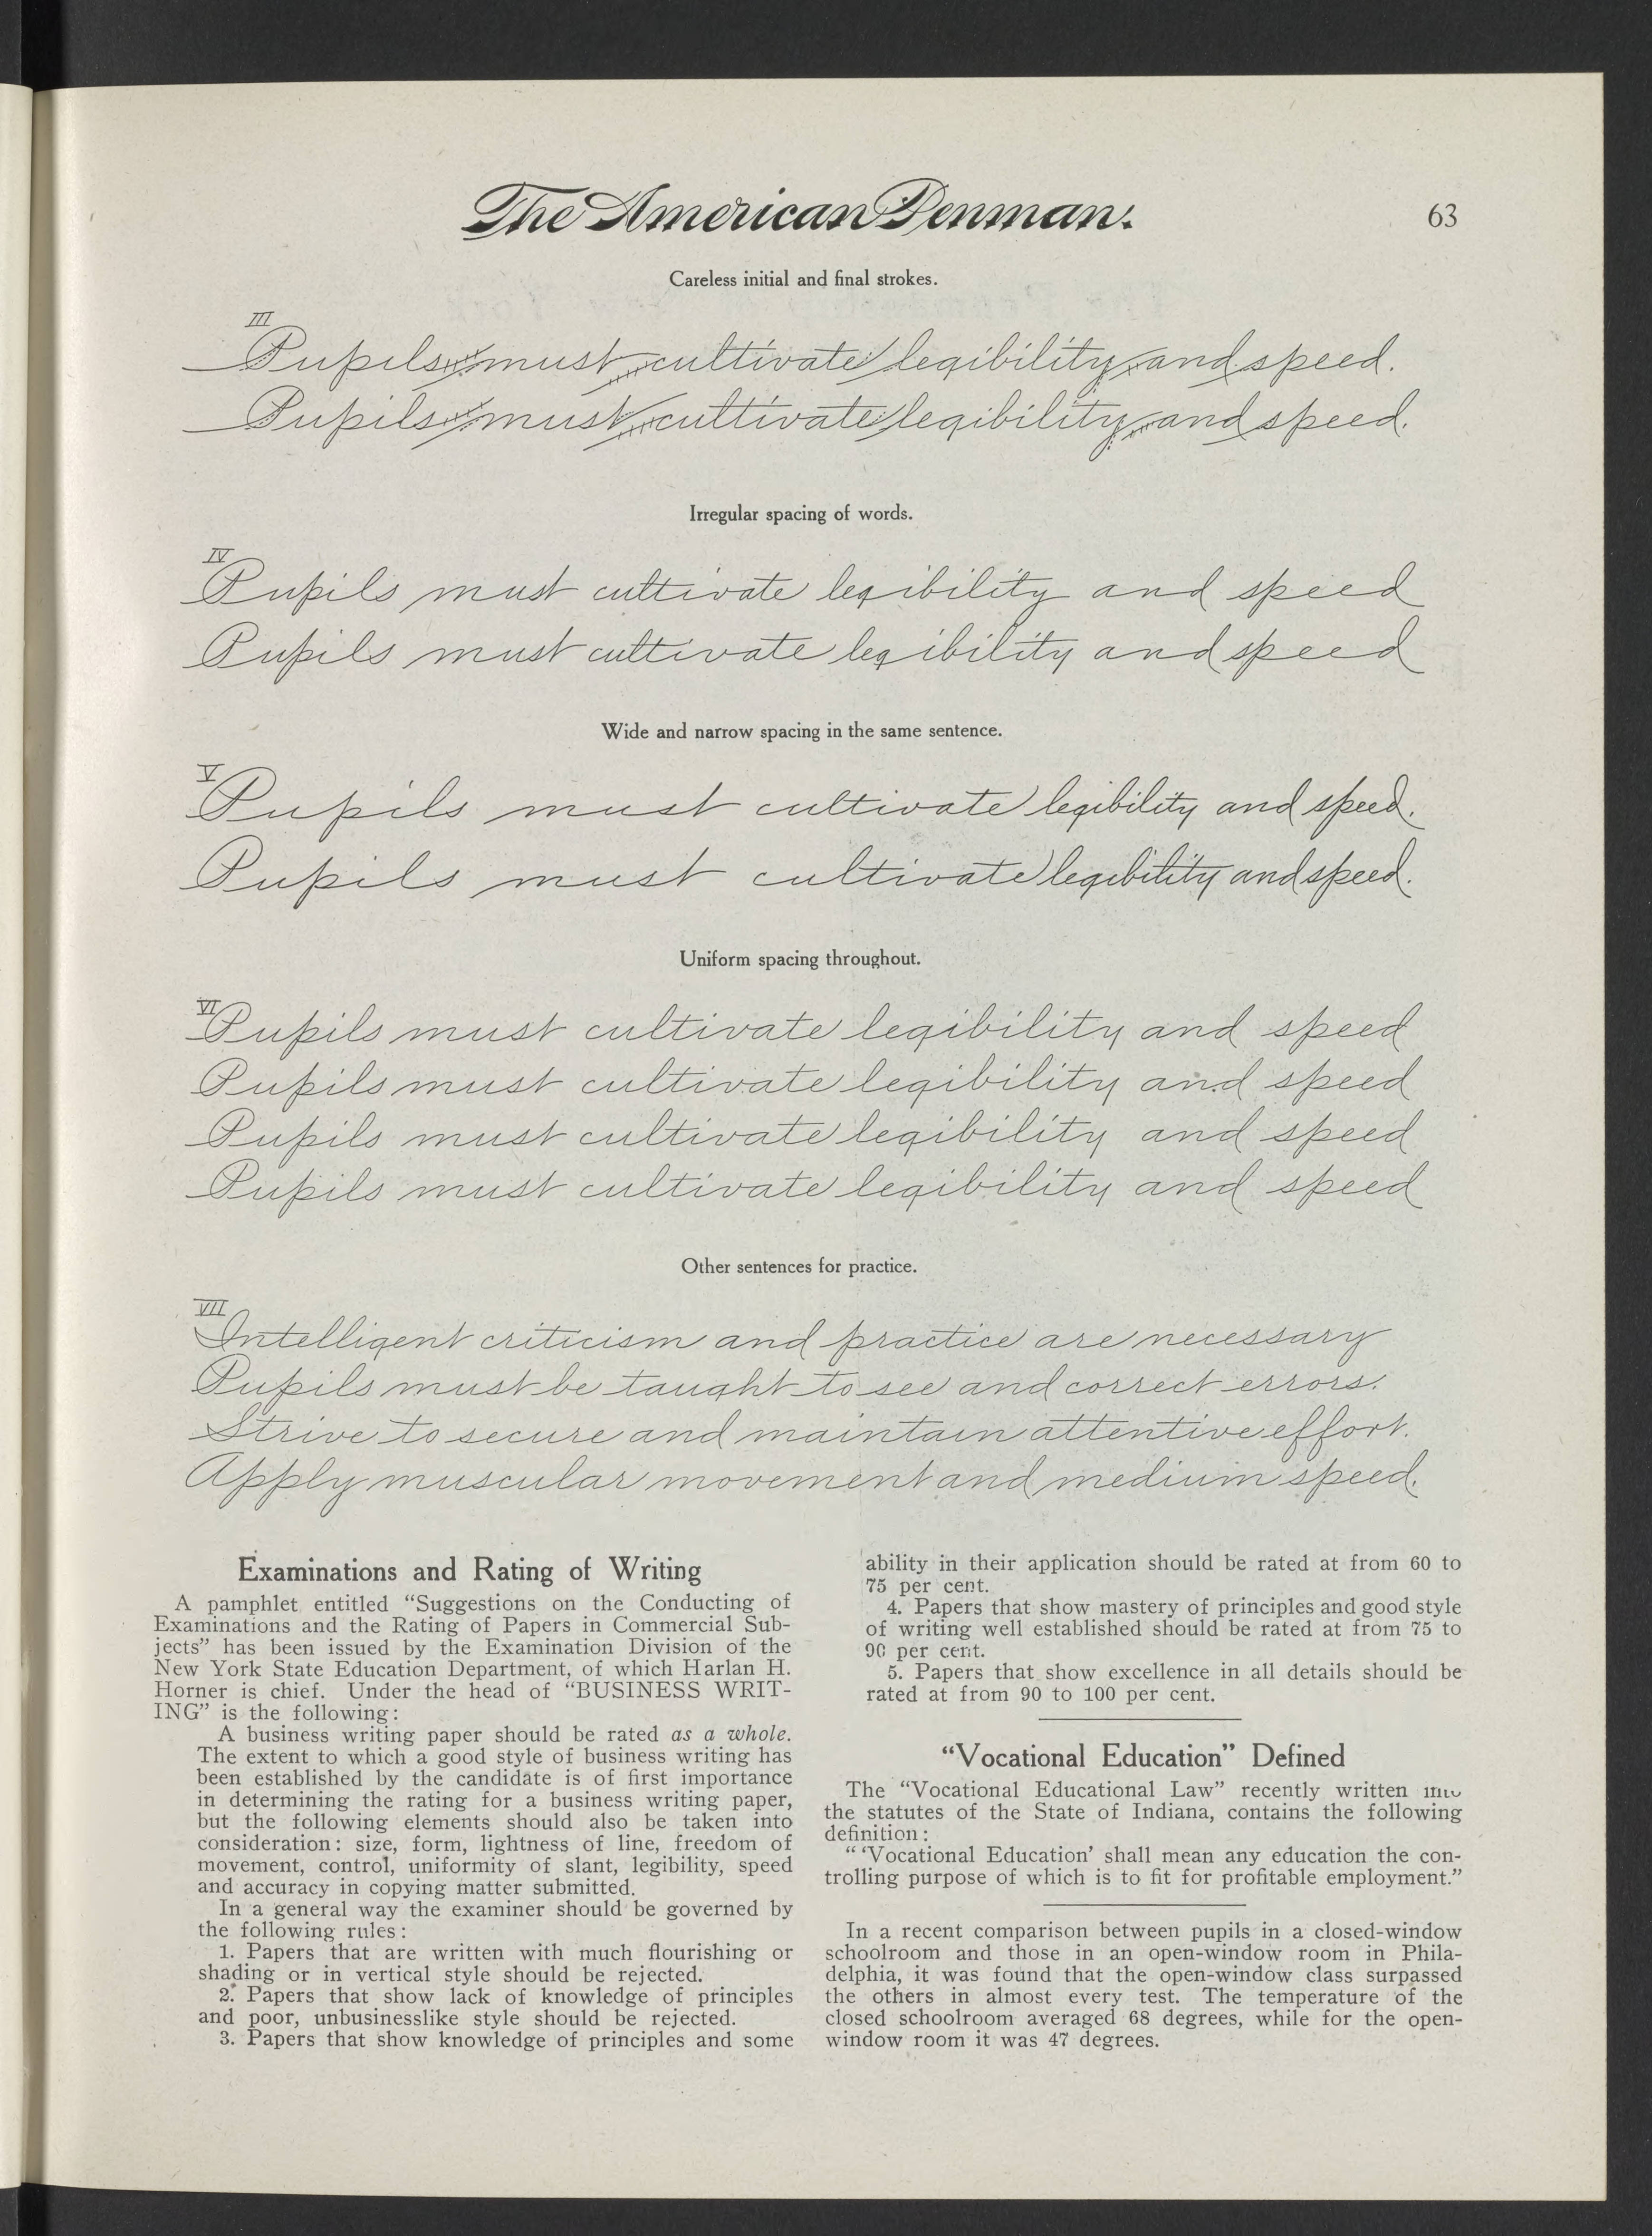 The American Penman.
63
Careless initial and final strokes.
III
Pupils must cultivate legibility and speed.
Pupils must cultivate legibility and speed.
Irregular spacing of words.
IV
Pupils must cultivate legibility and speed
Pupils must cultivate legibility and speed
Wide and narrow spacing in the same sentence.
V
Pupils must cultivate legibility and speed.
Pupils must cultivate legibility and speed.
Uniform spacing throughout.
VI
Pupils must cultivate legibility and speed
Pupils must cultivate legibility and speed
Pupils must cultivate legibility and speed
Pupils must cultivate legibility and speed
Other sentences for practice.
VII
Intelligent criticism and practice are necessary
Pupils must be taught to see and correct errors.
Strive to secure and maintain attentive effort.
Apply muscular movement and medium speed.
Examinations and Rating of Writing
A pamphlet entitled “Suggestions on the Conducting of
Examinations and the Rating of Papers in Commercial Sub-
jects” has been issued by the Examination Division of the
New York State Education Department, of which Harlan H.
Horner is chief. Under the head of “BUSINESS WRIT-
ING” is the following:
A business writing paper should be rated as a whole.
The extent to which a good style of business writing has
been established by the candidate is of first importance
in determining the rating for a business writing paper,
but the following elements should also be taken into
consideration: size, form, lightness of line, freedom of
movement, control, uniformity of slant, legibility, speed
and accuracy in copying matter submitted.
In a general way the examiner should be governed by
the following rules:
1. Papers that are written with much flourishing or
shading or in vertical style should be rejected.
2. Papers that show lack of knowledge of principles
and poor, unbusinesslike style should be rejected.
3. Papers that show knowledge of principles and some
ability in their application should be rated at from 60 to
75 per cent.
4. Papers that show mastery of principles and good style
of writing well established should be rated at from 75 to
90 per cent.
5. Papers that show excellence in all details should be
rated at from 90 to 100 per cent.
“Vocational Education” Defined
The “Vocational Educational Law” recently written into
the statutes of the State of Indiana, contains the following
definition:
“ ‘Vocational Education’ shall mean any education the con-
trolling purpose of which is to fit for profitable employment.”
In a recent comparison between pupils in a closed-window
schoolroom and those in an open-window room in Phila-
delphia, it was found that the open-window class surpassed
the others in almost every test. The temperature of the
closed schoolroom averaged 68 degrees, while for the open-
window room it was 47 degrees.